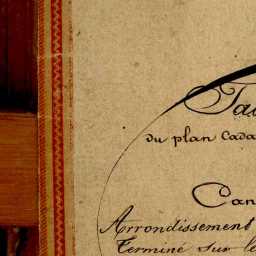 Ta
du plan cada
Can
Arrondissement
Terminé sur le